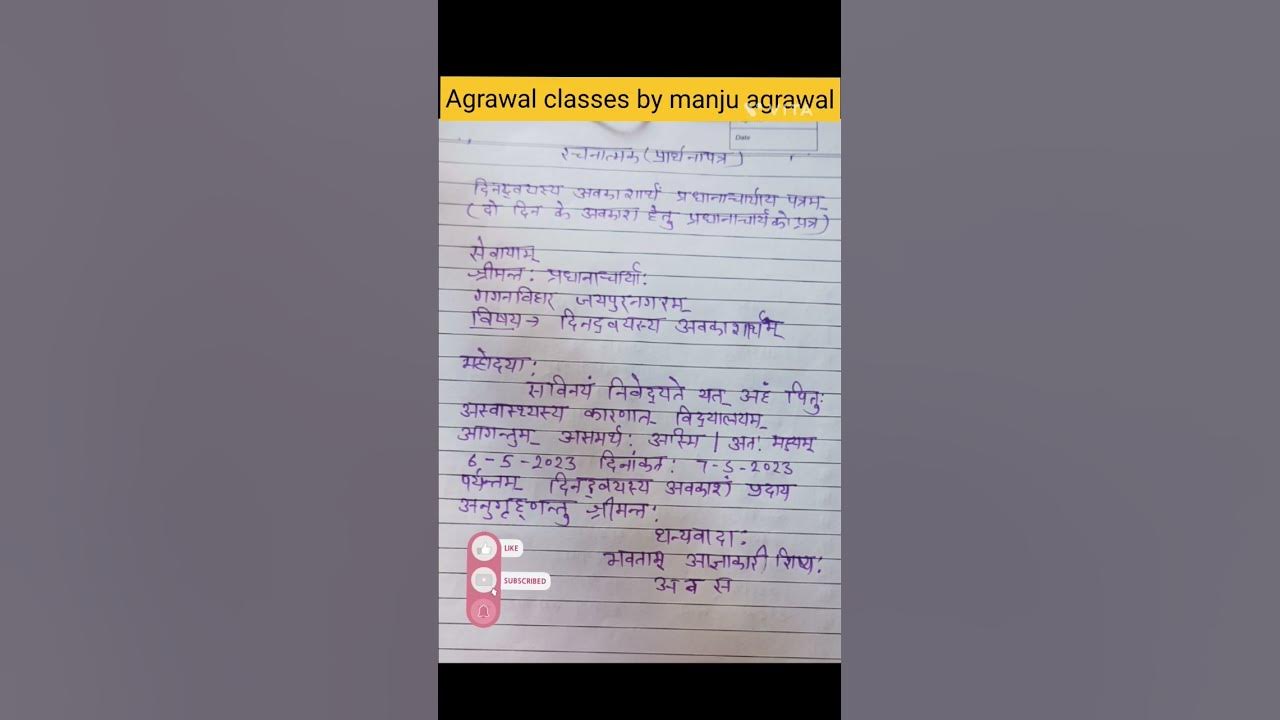 Agrawal classes by manju agrawal
VITA
Date
रचनात्मक (प्रार्थनापत्र)
दिनद्वयस्य अवकाशार्थं प्रधानाचार्याय पत्रम्
(दो दिन के अवकाश हेतु प्रधानाचार्य को पत्र)
सेवायाम्
श्रीमन्त: प्रधानाचार्या:
गगनविहार जयपुरनगरम्
विषय → दिनद्वयस्य अवकाशार्थम्
महोदया:
सविनयं निवेद्यते यत् अहं पितु:
अस्वास्थ्यस्य कारणात् विद्यालयम्
आगन्तुम् असमर्थ: अस्मि | अत: मह्यम्
6-5-2023 दिनांकत: 7-5-2023
पर्यन्तम् दिनद्वयस्य अवकाशं प्रदाय
अनुगृह्णन्तु श्रीमन्त:
धन्यवादा:
भवताम् आज्ञाकारी शिष्य:
अ ब स
LIKE
SUBSCRIBED